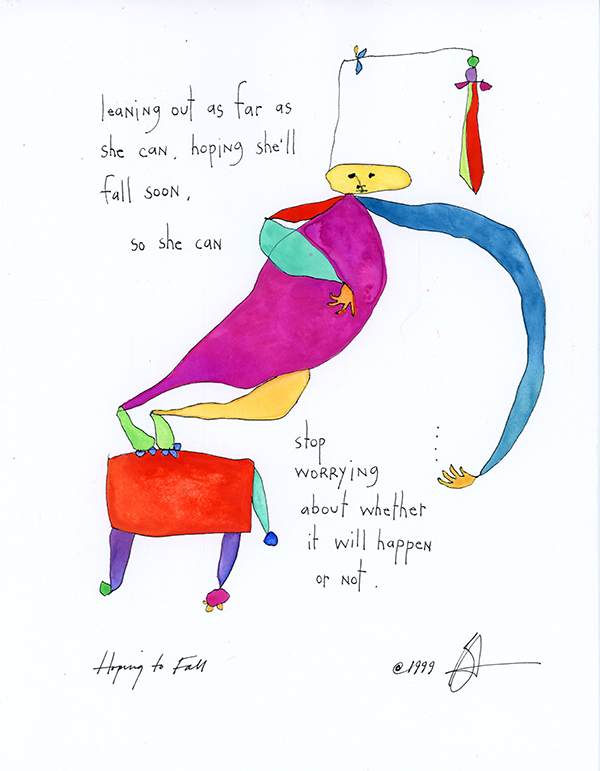 leaning out as far as
she can, hoping she'll
fall soon,
so she can
stop
worrying
about whether
it will happen
or not.
Hoping to Fall
©1999